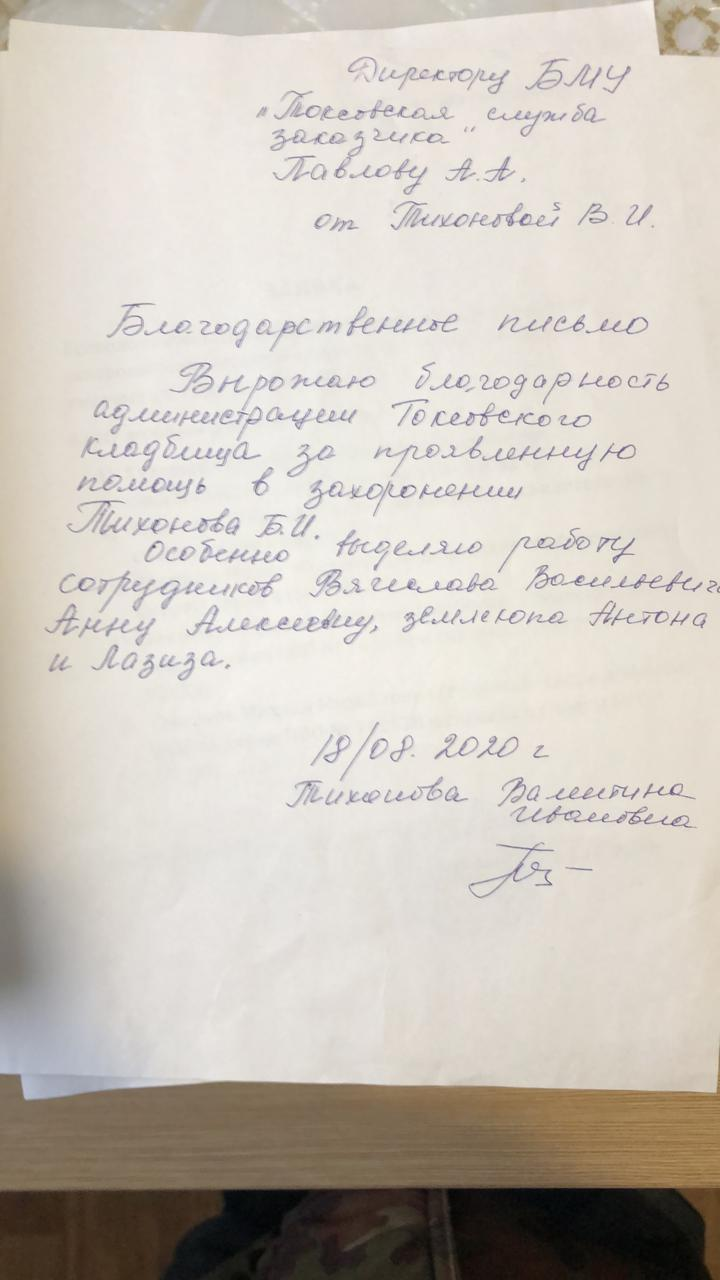 Директору БМУ
"Токсовская служба
заказчика"
Павлову А.А.
от Тихоновой В.И.
Благодарственное письмо
Вырожаю благодарность
администрации Токсовского
кладбища за проявленную
помощь в захоронении
Тихонова Б.И.
Особенно выделяю работу
сотрудников Вячеслава Васильевича
Анну Алексеевну, землекопа Антона
и Лазиза.
18/08. 2020 г
Тихонова Валентина
Ивановна